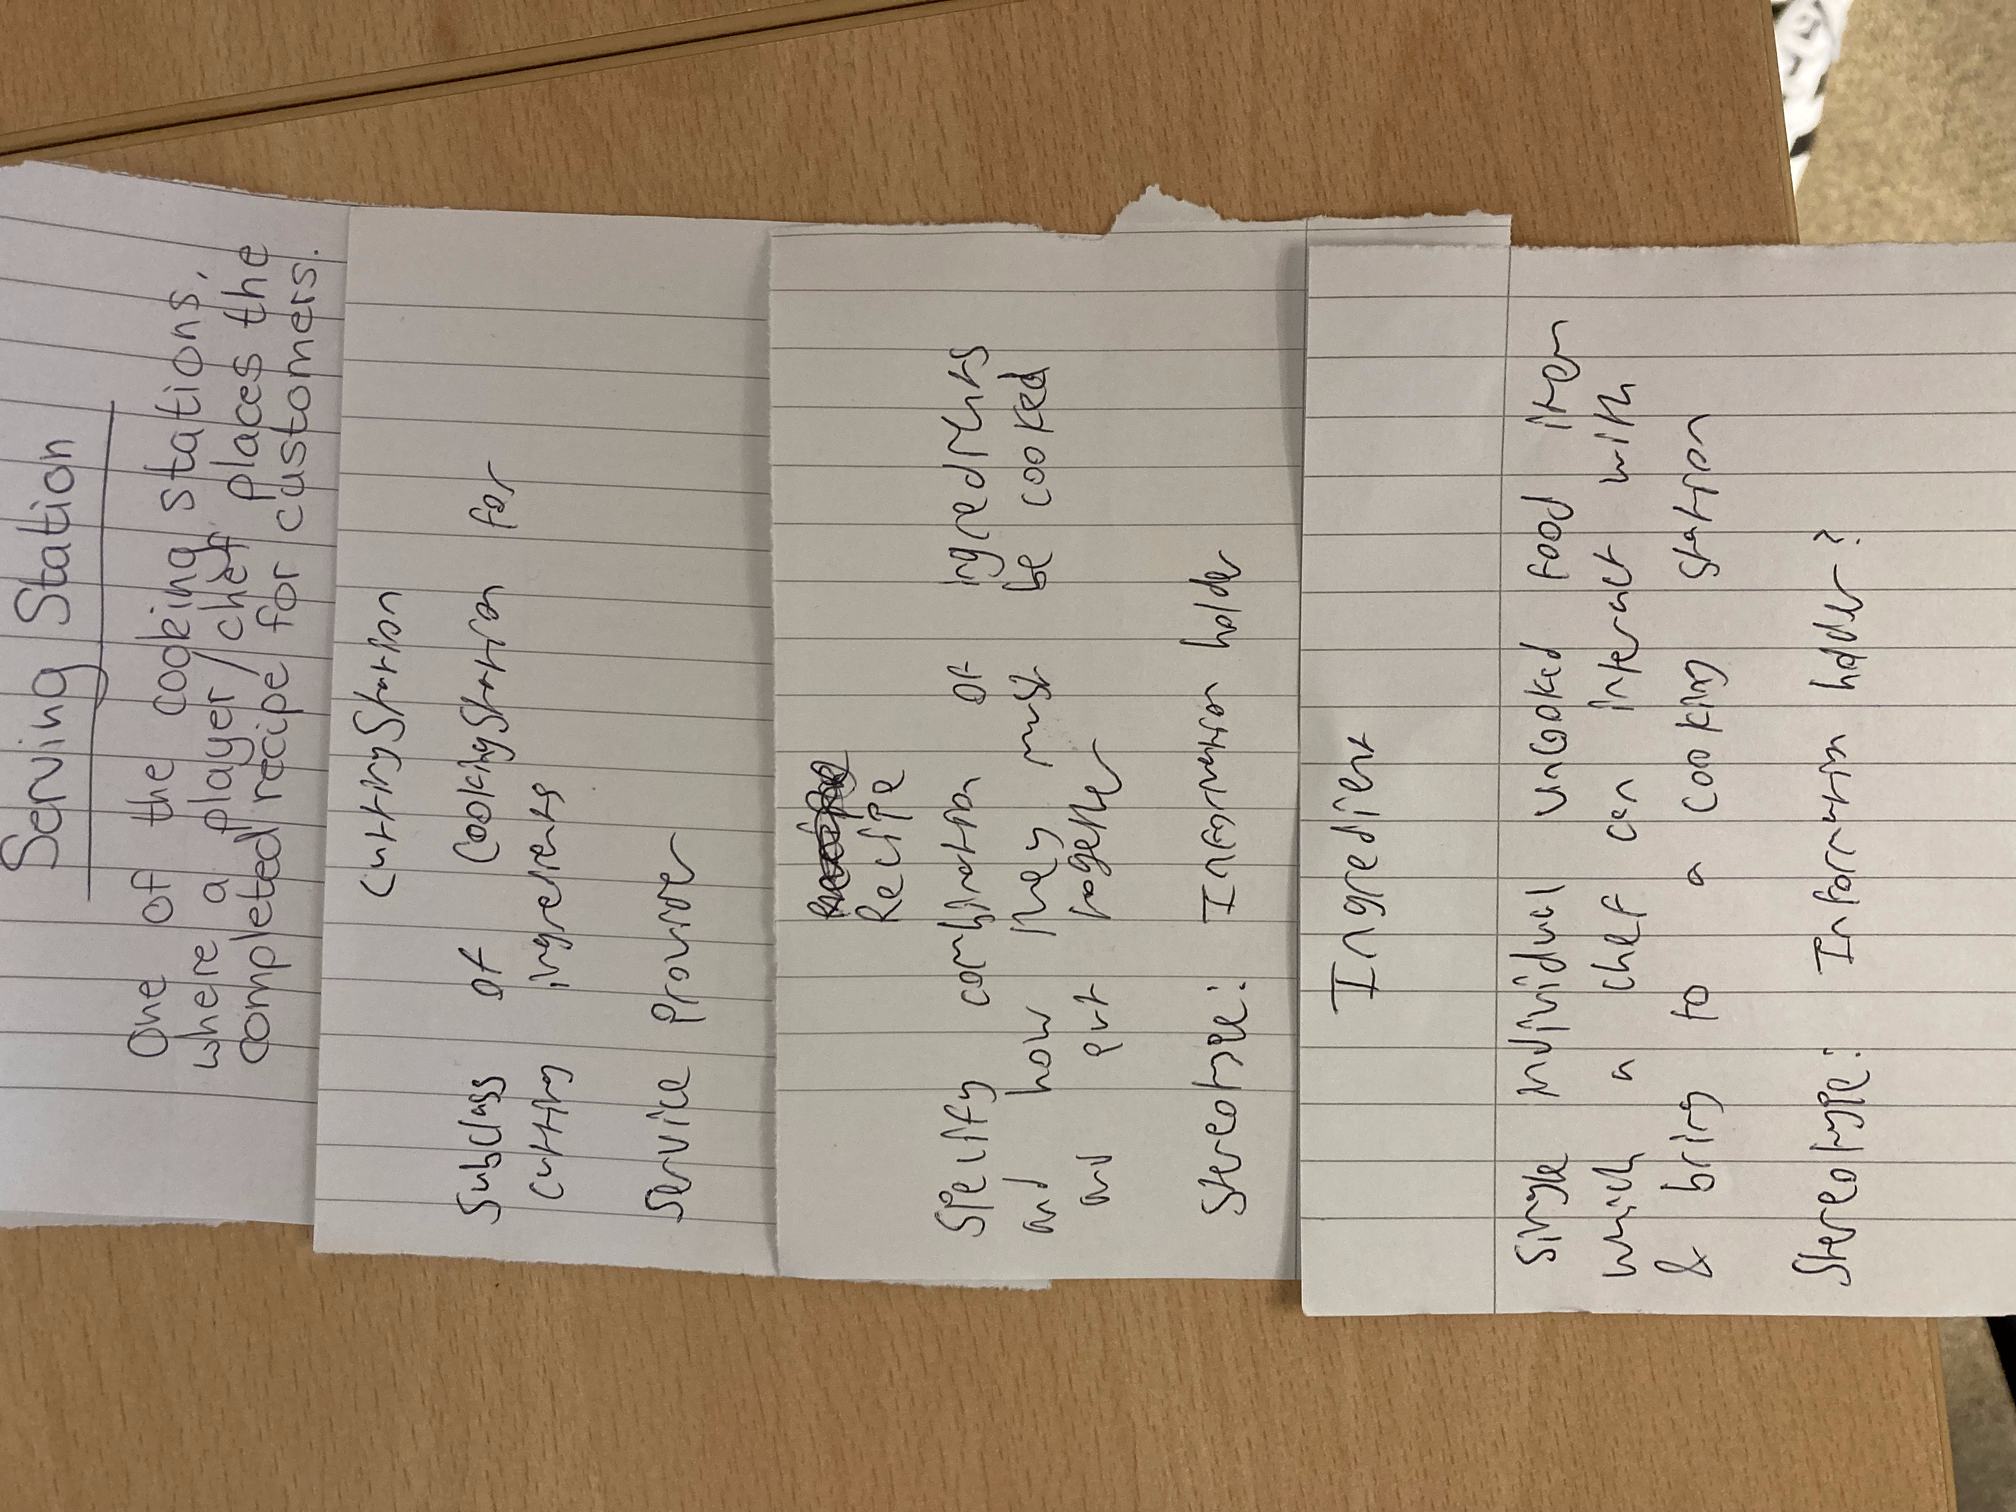 Serving Station
One of the cooking stations,
where a player/chef places the
completed recipe for customers.
CuttingStation
Subclass of CookingStation for
cutting ingredients
Service Provider
Recipe
Specify combination of ingredients
and how they must be cooked
and put together
Stereotype: Information holder
Ingredient
Single individual uncooked food item
which a chef can interact with
& bring to a cooking station
Stereotype: Information holder?